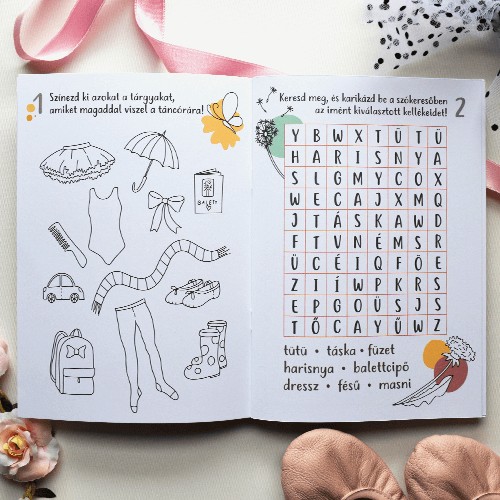 1 Színezd ki azokat a tárgyakat,
amiket magaddal viszel a táncórára!
BALETT
Keresd meg, és karikázd be a szókeresőben 2
az imént kiválasztott kellékeidet!
Y B W X T Ü T Ü
H A R I S N Y A
S L G M Y C O X
W E C A J X M Q
J T Á S K A W D
F T V N É M S R
Ü C É I Q F Ö E
Z I Í W P K R S
E P G O Ü S J S
T Ő C A Y Ű W Z
tütü • táska • füzet
harisnya • balettcipő
dressz • fésű • masni